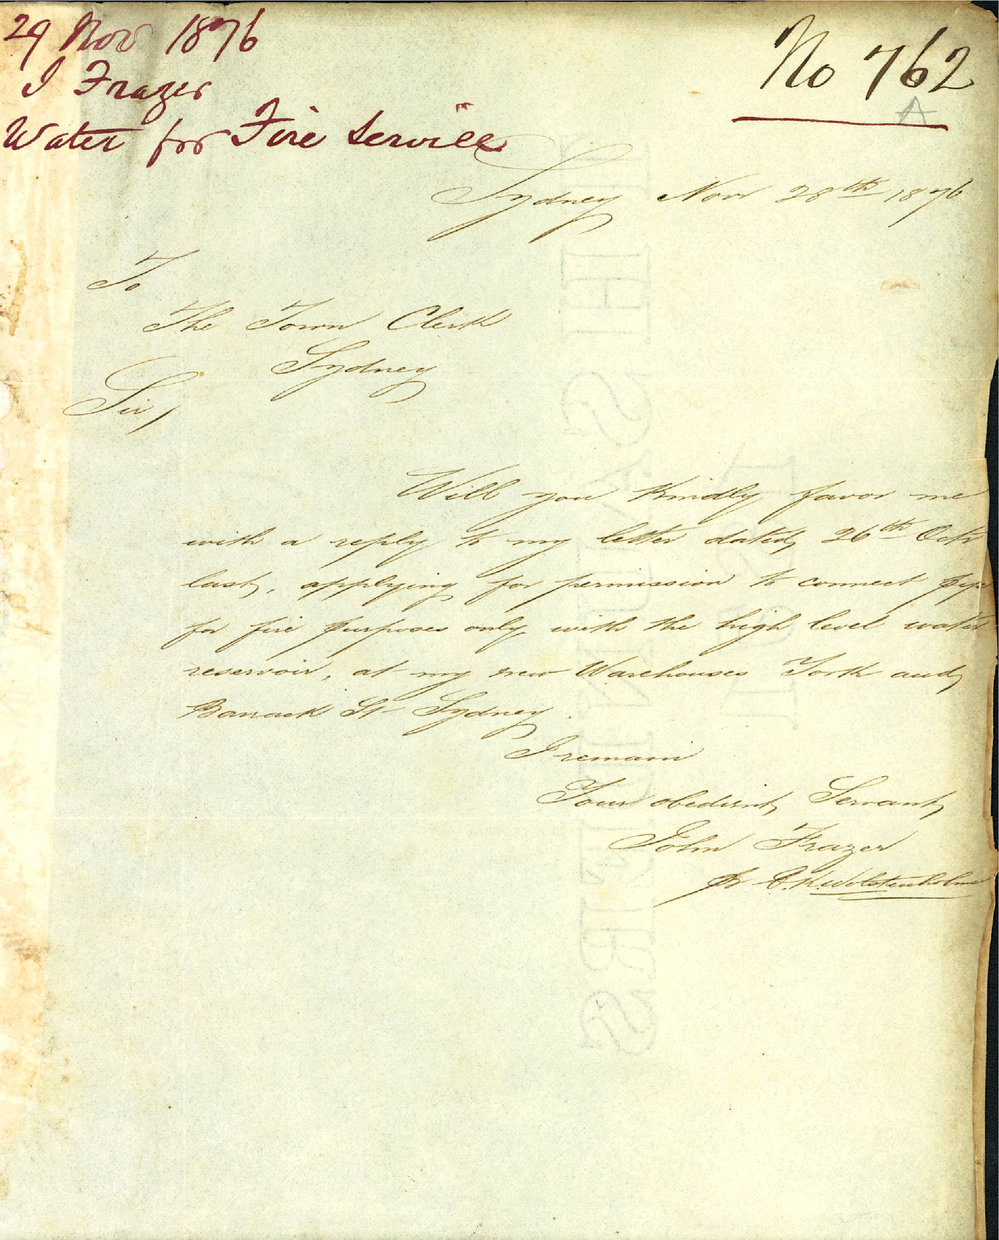 29 Nov 1876
J Frazer
Water for Fire Service
No 762
A
Sydney Nov 28th 1876
To
The Town Clerk
Sydney
Sir,
Will you kindly favor me
with a reply to my letter dated 26th Octr
last, applying for permission to connect pipe
for fire purposes only with the high level water
reservoir, at my new Warehouses York and
Barrack St Sydney.
I remain
Your obedient Servant
John Frazer
pr Wolstenholme